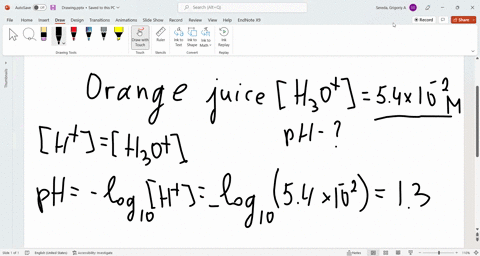 AutoSave Off Drawing.pptx • Saved to this PC Search Sereda, Grigoriy A
File Home Insert Draw Design Transitions Animations Slide Show Record Review View Help EndNote X9 Record Share
Draw with Touch Ink to Text Ink to Shape Ink to Math Ink Replay
Drawing Tools Convert Replay
Thumbnails
Orange juice [H₃O⁺] = 5.4 × 10⁻² M
pH - ?
[H⁺] = [H₃O⁺]
pH = -log₁₀ [H⁺] = -log₁₀ (5.4 × 10⁻²) = 1.3
Slide 1 of 1 English (United States) Accessibility: Investigate Notes